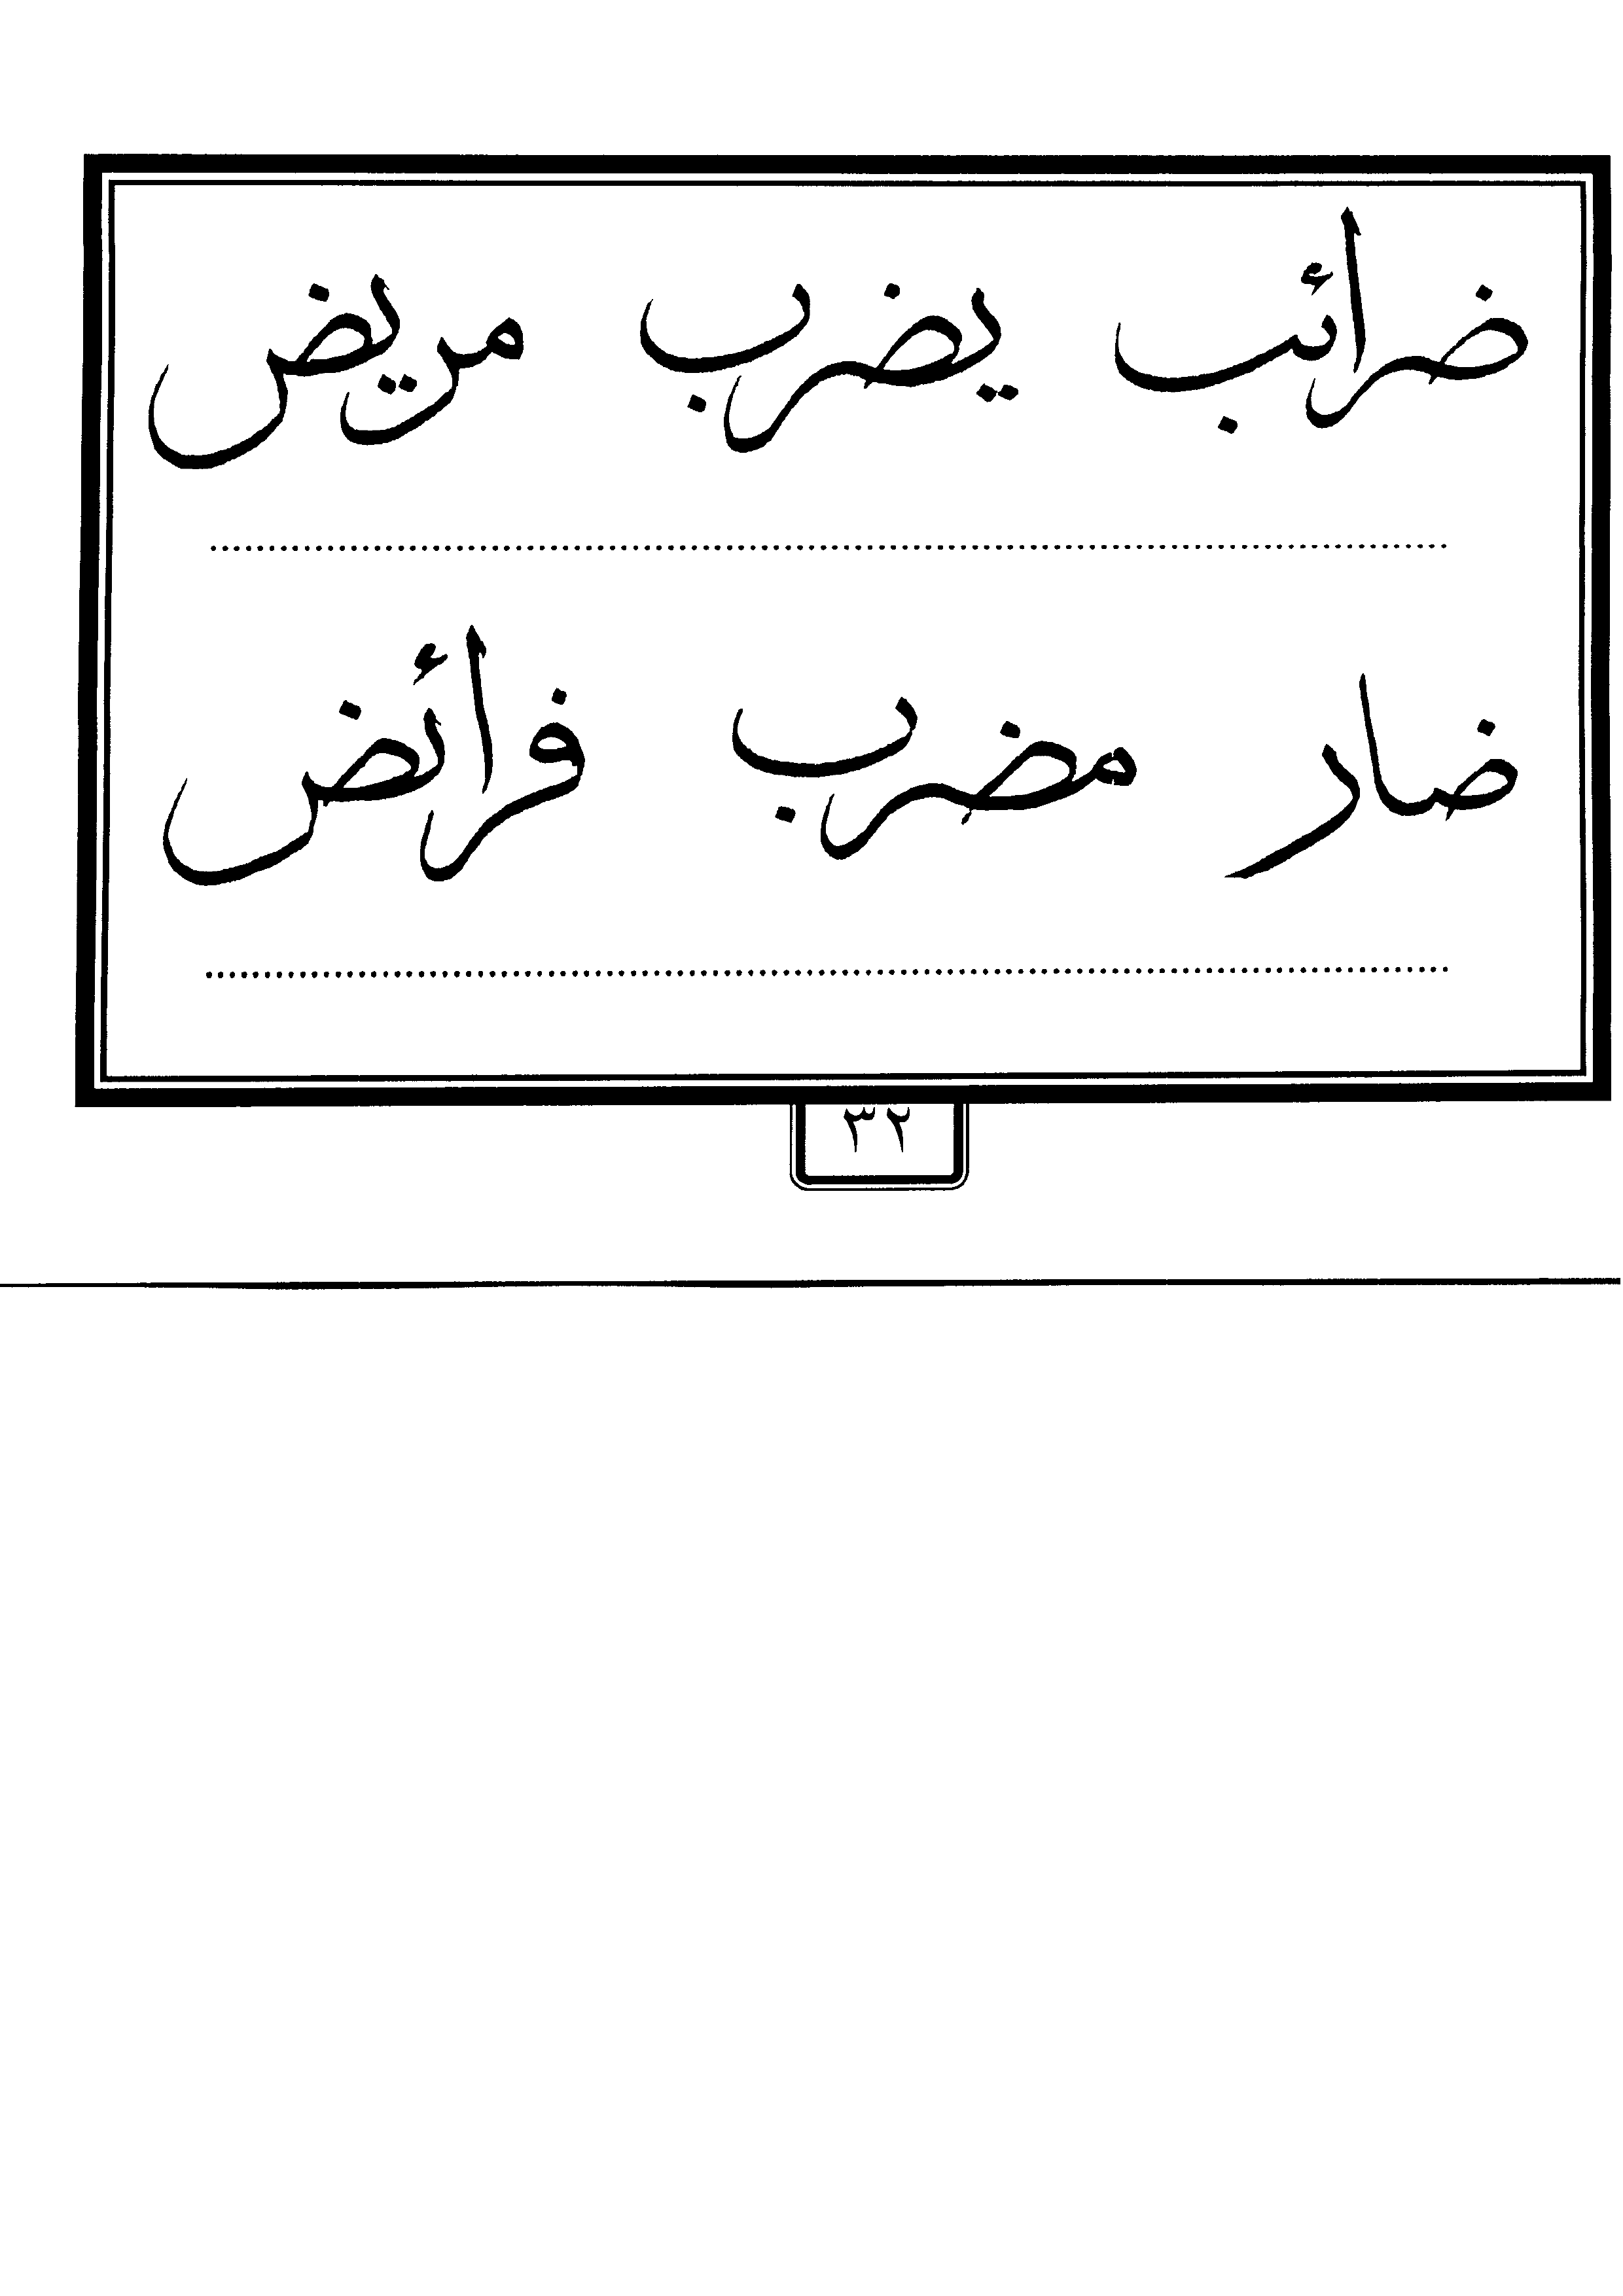 ضرائب يضرب مريض
ضار مضرب فرائض
٣٢